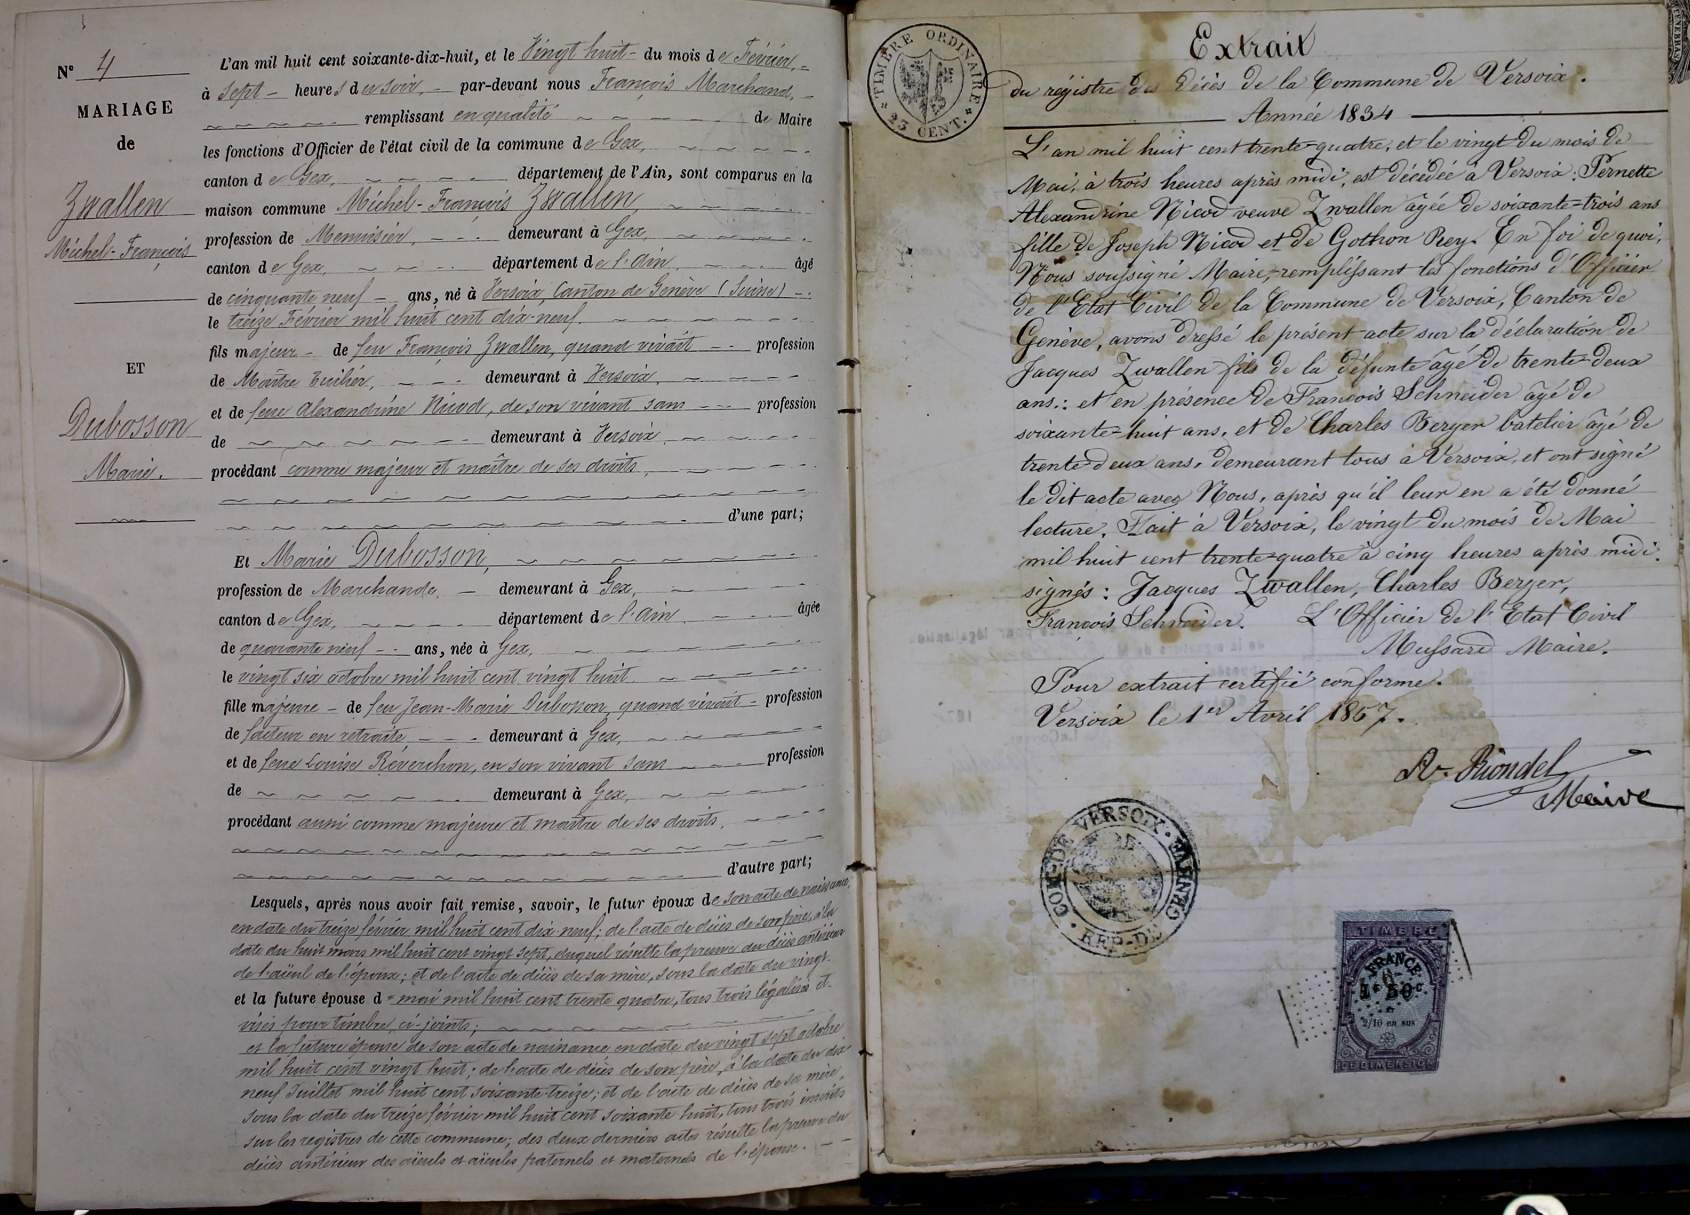 N° 4
MARIAGE
de
Zwallen
Michel-François
ET
Dubosson
Marie.
L'an mil huit cent soixante-dix-huit, et le Vingt huit du mois de Février,
à sept heures du soir, par-devant nous François Marchand,
remplissant en qualité de Maire
les fonctions d'Officier de l'état civil de la commune de Gex,
canton de Gex, département de l'Ain, sont comparus en la
maison commune Michel-François Zwallen,
profession de Menuisier, demeurant à Gex,
canton de Gex, département de l'Ain, âgé
de cinquante neuf ans, né à Versoix, Canton de Genève (Suisse)
le treize Février mil huit cent dix-neuf.
fils majeur de feu François Zwallen, quand vivait profession
de Maître Tuilier, demeurant à Versoix,
et de feue Alexandrine Nicod, de son vivant sans profession
de demeurant à Versoix,
procédant comme majeur et maître de ses droits,
d'une part;
Et Marie Dubosson,
profession de Marchande, demeurant à Gex,
canton de Gex, département de l'Ain âgée
de quarante neuf ans, née à Gex,
le vingt six octobre mil huit cent vingt huit
fille majeure de feu Jean-Marie Dubosson, quand vivait profession
de facteur en retraite, demeurant à Gex,
et de feue Louise Reverchon, en son vivant sans profession
de demeurant à Gex,
procédant aussi comme majeure et maître de ses droits.
d'autre part;
Lesquels, après nous avoir fait remise, savoir, le futur époux de son acte de naissance,
en date du treize février mil huit cent dix neuf; de l'acte de décès de son père, à la
date du huit mars mil huit cent vingt sept, duquel résulte la preuve du décès antérieur
de l'aïeul de l'époux; et de l'acte de décès de sa mère, sous la date du vingt
et la future épouse d mai mil huit cent trente quatre, tous trois légalisés et
visés pour timbre, ci-joints;
et la future épouse de son acte de naissance en date du vingt sept octobre
mil huit cent vingt huit; de l'acte de décès de son père, à la date du dix
neuf Juillet mil huit cent soixante treize; et de l'acte de décès de sa mère,
sous la date du treize février mil huit cent soixante huit, tous trois inscrits
sur les registres de cette commune; des deux derniers actes résulte la preuve du
décès antérieur des aïeuls et aïeules paternels et maternels de l'épouse.
TIMBRE ORDINAIRE
25 CENT.
Extrait
du régistre des décès de la Commune de Versoix.
Année 1834
L'an mil huit cent trente-quatre, et le vingt du mois de
Mai, à trois heures après midi, est décédée à Versoix: Pernette
Alexandrine Nicod veuve Zwallen âgée de soixante-trois ans
fille de Joseph Nicod et de Gothon Rey. En foi de quoi,
Nous soussigné Maire, remplissant les fonctions d'Officier
de l'Etat Civil de la Commune de Versoix, Canton de
Genève, avons dressé le présent acte sur la déclaration de
Jacques Zwallen fils de la défunte âgé de trente-deux
ans.: et en présence de François Schneider âgé de
soixante-huit ans, et de Charles Berger batelier âgé de
trente-deux ans, demeurant tous à Versoix, et ont signé
le dit acte avec Nous, après qu'il leur en a été donné
lecture. Fait à Versoix, le vingt du mois de Mai
mil huit cent trente-quatre à cinq heures après midi.
signés: Jacques Zwallen, Charles Berger,
François Schneider. L'Officier de l'Etat Civil
Mussard Maire.
Pour extrait certifié conforme.
Versoix le 1er Avril 1857.
Riondel
Maire
COM-DE VERSOIX
REP-DE GENEVE
TIMBRE
FRANCE
1F 50C
2/10 en sus
DE DIMENSION